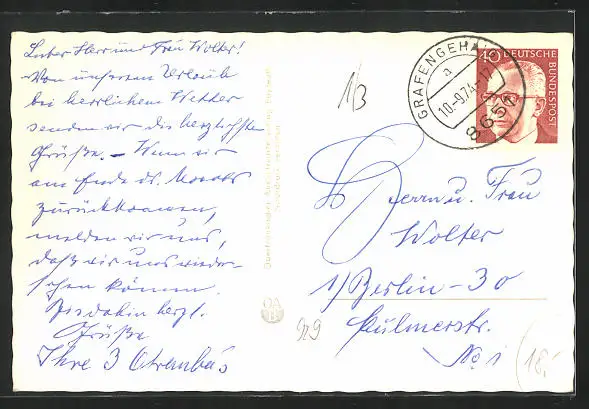 Lieber Herr und Frau Wolter!
Von unserem Urlaub
bei herrlichem Wetter
senden wir die herzlichsten
Grüße. – Wenn wir
am Ende ds. Monats
zurückkommen,
melden wir uns,
daß wir uns wieder-
sehen können.
Bis dahin herzl.
Grüße
Ihre 3 Otrembas
GRAFENGEHAIG
a
10.-9.74-17
8651
40 DEUTSCHE
BUNDESPOST
Herrn u. Frau
Wolter
1/Berlin-30
Kulmerstr.
No. 1
18,-